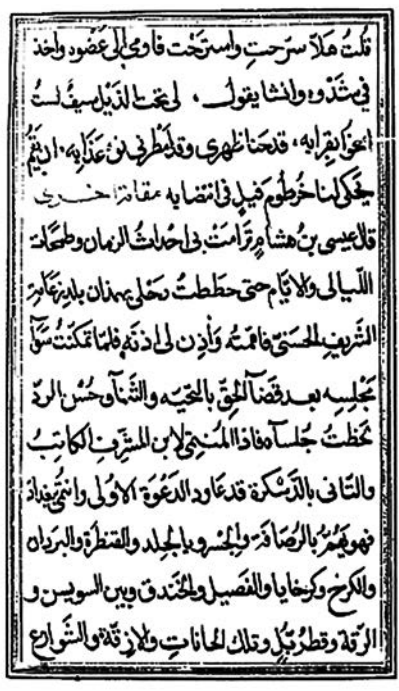 قلت هلا سرحت واسترحت فاومى الى عضود واخذ
في شدوه وانشا يقول . لي تحت الذيل سيف لست
انجو بقرابه ، قد حنا ظهري وقد نظرني من عذابه ، ان يقم
يحكى لنا خرطوم فيل في انتصابه مقامة اخرى
قال عيسى بن هشام ترامت بي احداث الزمان وطمحات
الليالي والايام حتى حططت رحلي بهمذان بلد بن عامر
الشريف الحسني فاممته واذن لي اذنه فلما تمكنت سوآ
مجلسه بعد قضآ الحق بالتحيه والثنآ وحسن الرد
لحظت جلسآه فاذا المنتمى لابن المشرف الكاتب
والثاني بالدسكرة قد عاود الدعوة الاولى وانتمى بغداد
فهو يهم بالرصافة والجسر وبالجلد والقنطرة والبردان
والكرخ وكرخايا والفصيل والخندق وبين السويس و
الرقة وقطربل وتلك الحانات والازقة والشوارع